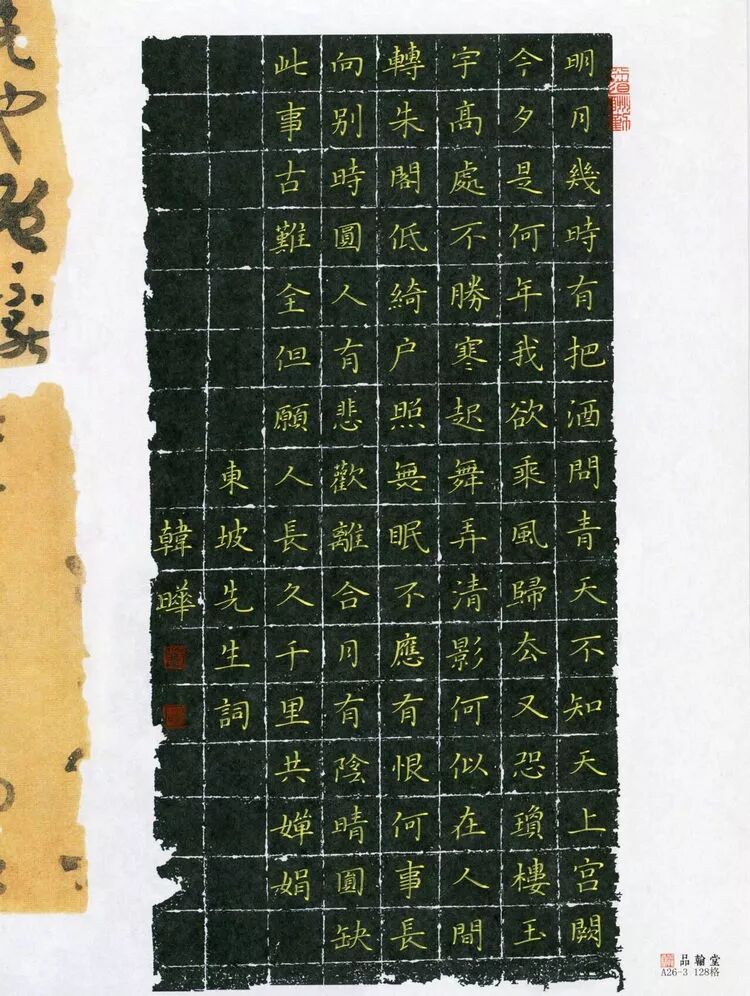 明月幾時有把酒問青天不知天上宮闕
今夕是何年我欲乘風歸厺又恐瓊樓玉
宇髙處不勝寒起舞弄清影何似在人間
轉朱閣低綺户照無眠不應有恨何事長
向別時圓人有悲歡離合月有陰晴圓缺
此事古難全但願人長久千里共嬋娟
東坡先生詞
韓曄
品翰堂
A26-3 128格